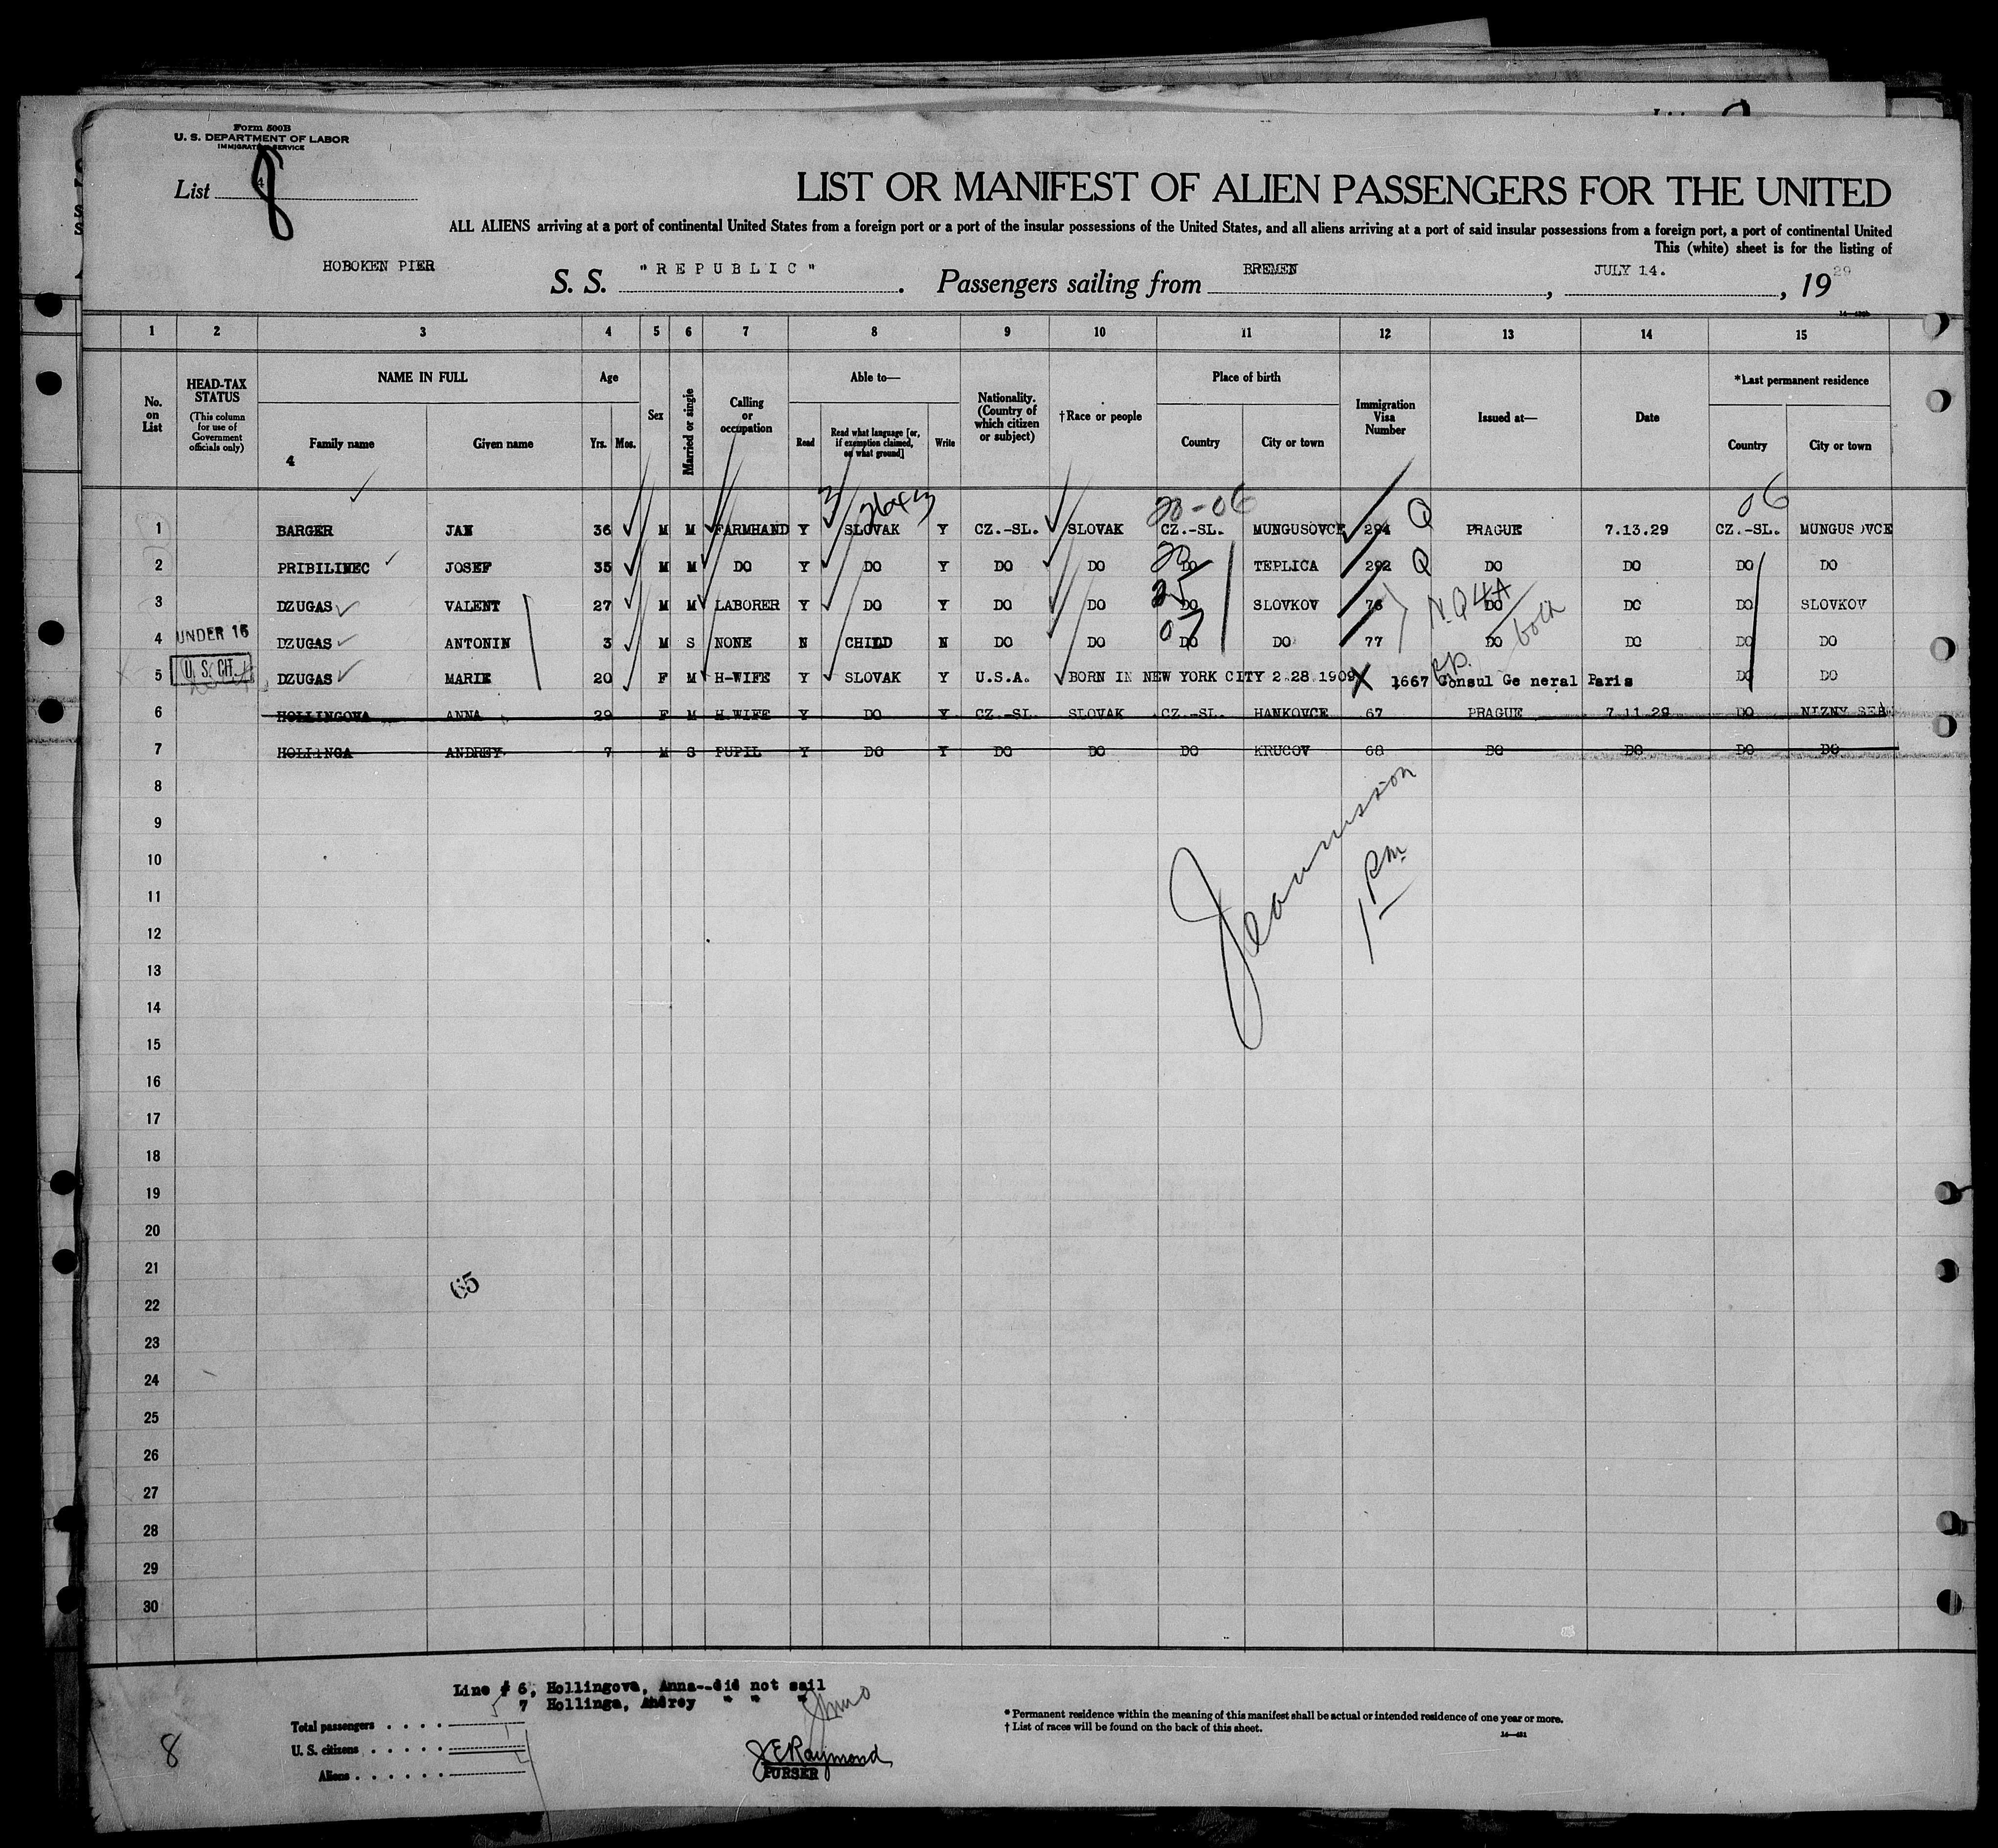 Form 500B
U. S. DEPARTMENT OF LABOR
IMMIGRATION SERVICE
List 8
LIST OR MANIFEST OF ALIEN PASSENGERS FOR THE UNITED
ALL ALIENS arriving at a port of continental United States from a foreign port or a port of the insular possessions of the United States, and all aliens arriving at a port of said insular possessions from a foreign port, a port of continental United
This (white) sheet is for the listing of
HOBOKEN PIER S. S. "REPUBLIC". Passengers sailing from BREMEN, JULY 14., 1929
1 2 3 4 5 6 7 8 9 10 11 12 13 14 15
No. on List
HEAD-TAX STATUS (This column for use of Government officials only)
NAME IN FULL Family name Given name
4
Age Yrs. Mos.
Sex
Married or single
Calling or occupation
Able to— Read Read what language [or, if exemption claimed, on what ground] Write
Nationality. (Country of which citizen or subject)
†Race or people
Place of birth Country City or town
Immigration Visa Number
Issued at—
Date
*Last permanent residence Country City or town
20-06 06
1 BARGER JAN 36 M M FARMHAND Y SLOVAK Y CZ.-SL. SLOVAK CZ.-SL. MUNGUSOVCE 294 Q PRAGUE 7.13.29 CZ.-SL. MUNGUSOVCE
2 PRIBILINEC JOSEF 35 M M DO Y DO Y DO DO DO TEPLICA 292 Q DO DO DO DO
3 DZUGAS VALENT 27 M M LABORER Y DO Y DO DO DO SLOVKOV 76 N.Q 4A DO DO DO SLOVKOV
4 UNDER 16 DZUGAS ANTONIN 3 M S NONE N CHILD N DO DO DO DO 77 DO both DO DO DO
5 U. S. CIT. DZUGAS MARIE 20 F M H-WIFE Y SLOVAK Y U.S.A. BORN IN NEW YORK CITY 2.28.1909 1667 Consul General Paris DO DO
6 HOLLINGOVA ANNA 29 F M H.WIFE Y DO Y CZ.-SL. SLOVAK CZ.-SL. HANKOVCE 67 PRAGUE 7.11.29 DO NIZNY SEB
7 HOLLINGA ANDREY 7 M S PUPIL Y DO Y DO DO DO KRUCOV 68 DO DO DO DO
8
9
10
11
12
13
14
15
16
17
18
19
20
21
22
23
24
25
26
27
28
29
30
1 Pm
65
Line # 6, Hollingova, Anna--did not sail
7 Hollinga, Andrey " " "
Total passengers 5
U. S. citizens 1
Aliens 4
8
J E Raymond
PURSER
* Permanent residence within the meaning of this manifest shall be actual or intended residence of one year or more.
† List of races will be found on the back of this sheet.